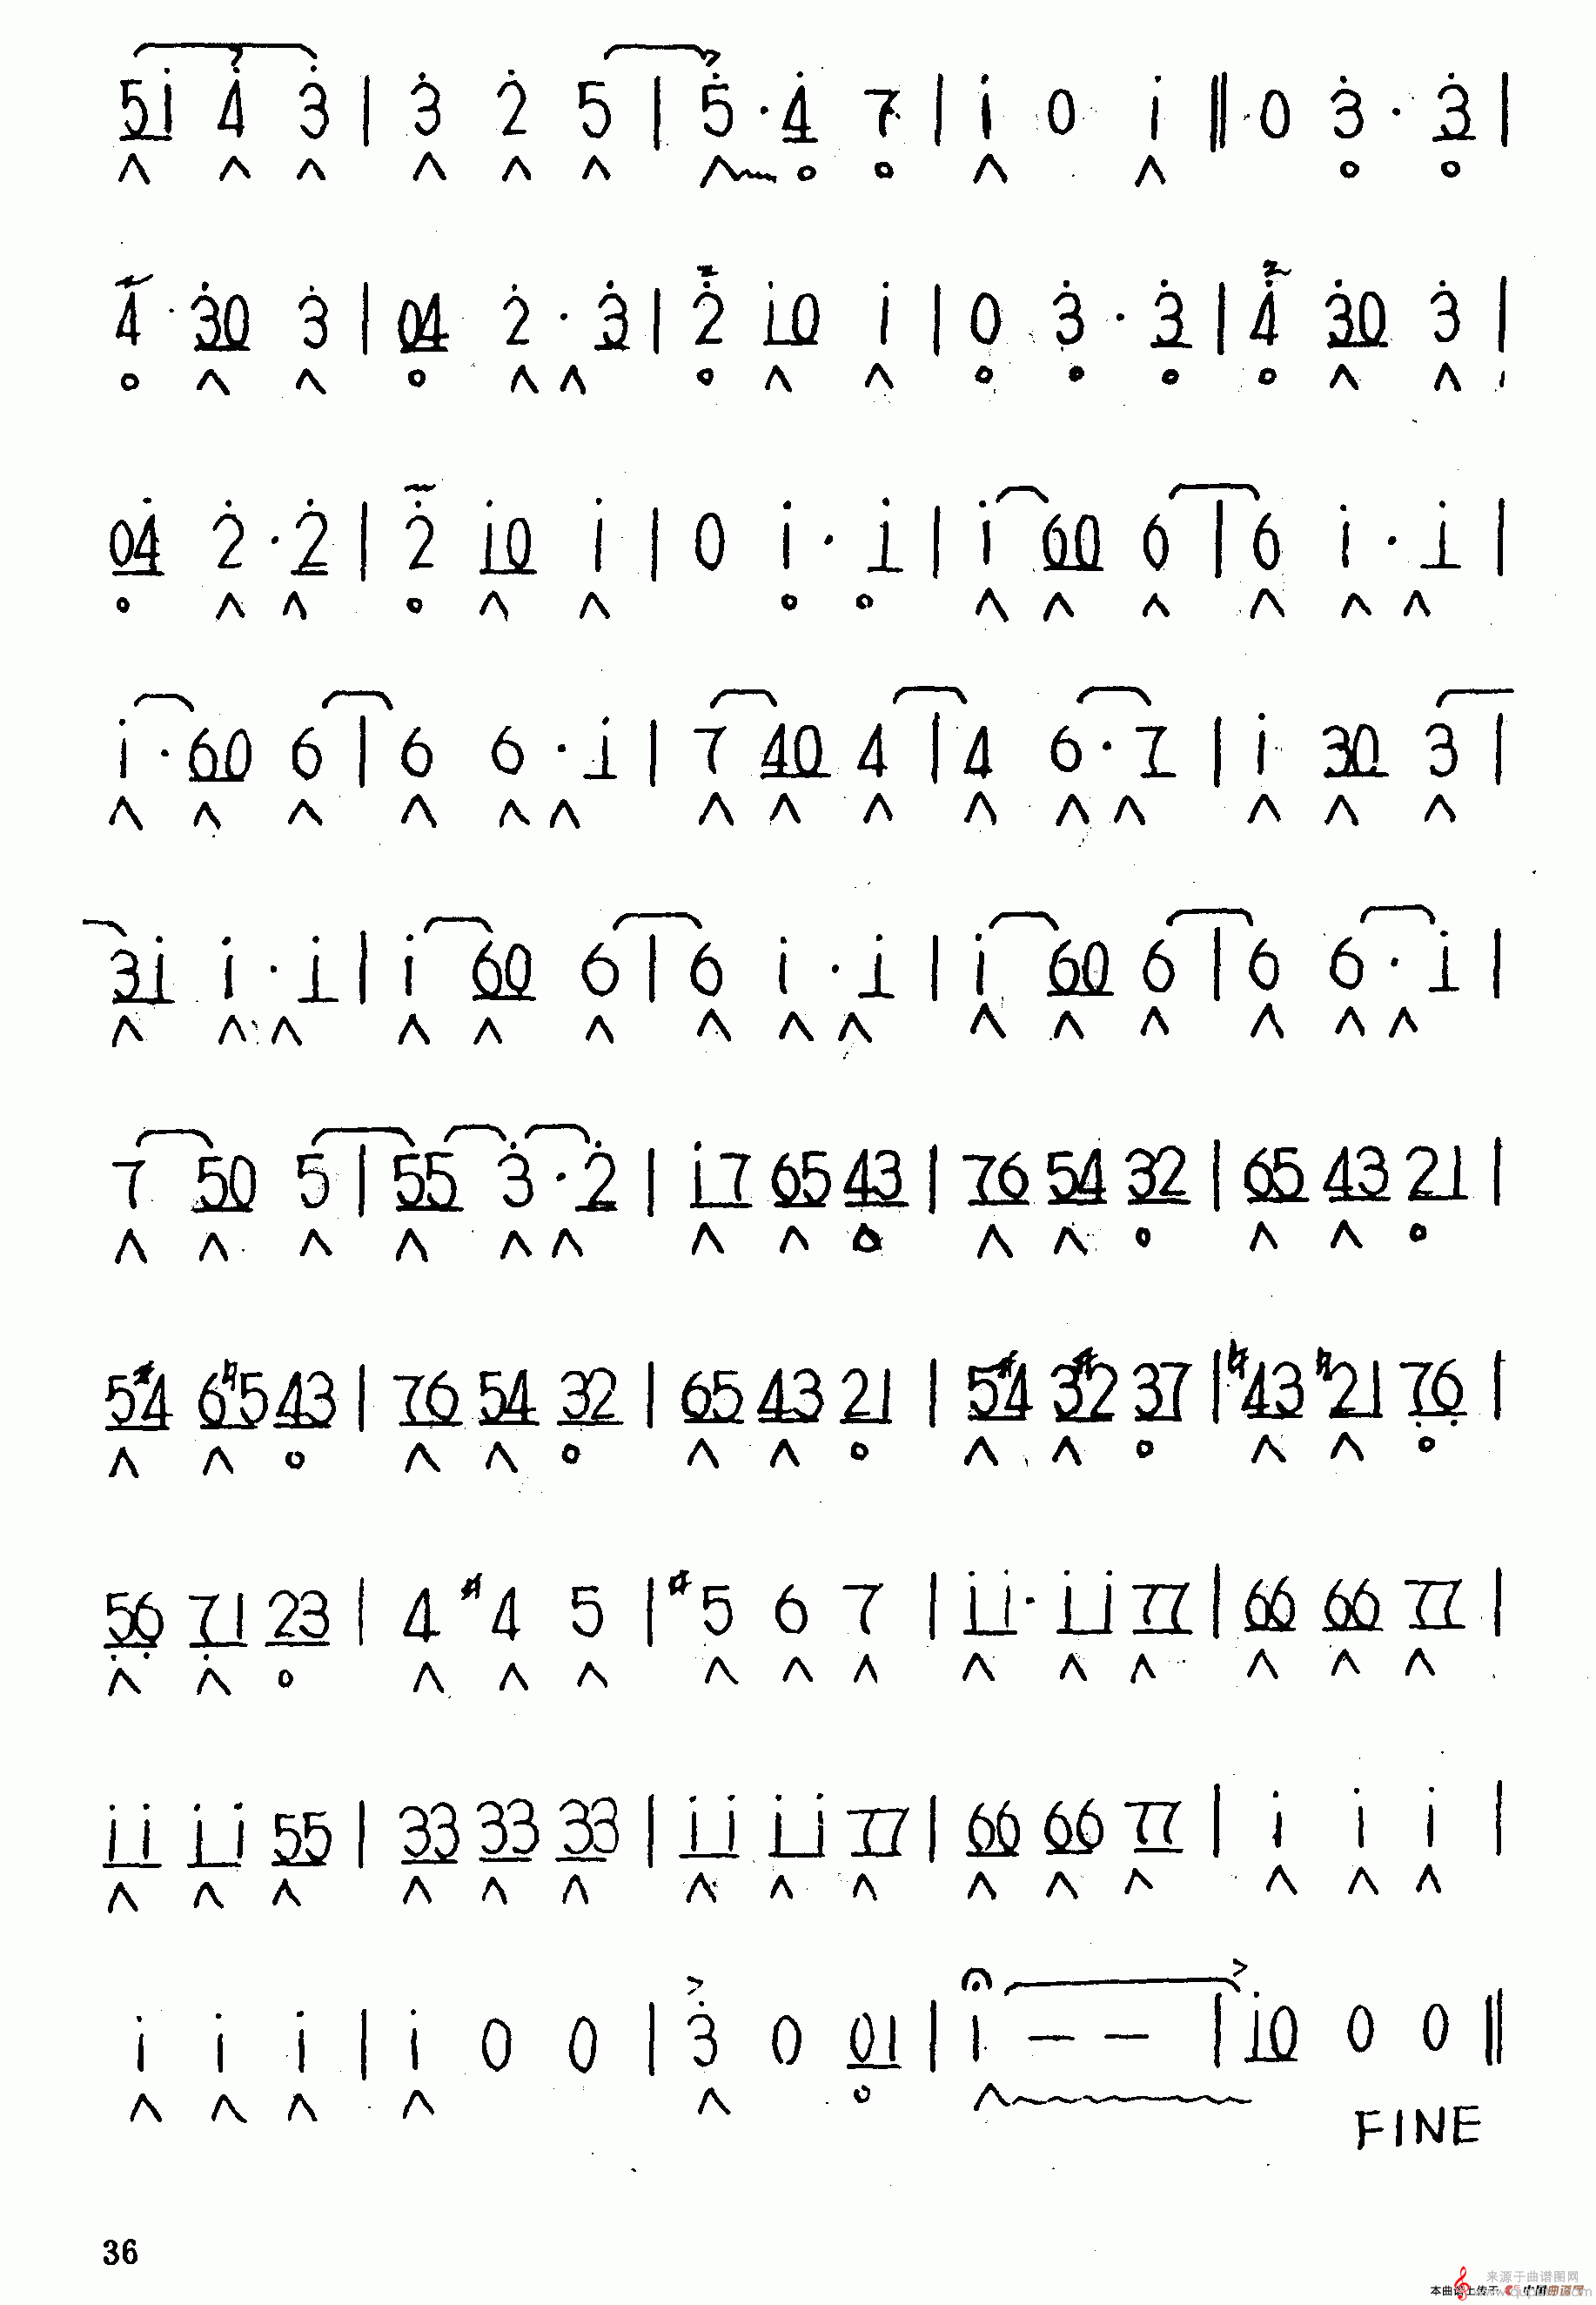 5i 4 3 | 3 2 5 | 5 · 4 7 | i 0 i ‖ 0 3 · 3 |
4 · 30 3 | 04 2 · 3 | 2 i0 i | 0 3 · 3 | 4 30 3 |
04 2 · 2 | 2 i0 i | 0 i · i | i 60 6 | 6 i · i |
i · 60 6 | 6 6 · i | 7 40 4 | 4 6 · 7 | i · 30 3 |
3i i · i | i 60 6 | 6 i · i | i 60 6 | 6 6 · i |
7 50 5 | 55 3 · 2 | i7 65 43 | 76 54 32 | 65 43 21 |
5#4 6♮5 43 | 76 54 32 | 65 43 21 | 5#4 3#2 37 | ♮43 ♮21 76 |
56 71 23 | 4 #4 5 | #5 6 7 | ii · ii 77 | 66 66 77 |
ii ii 55 | 33 33 33 | ii ii 77 | 66 66 77 | i i i |
i i i | i 0 0 | 3 0 01 | 1 — — | i0 0 0 ‖
FINE
36
来源于曲谱图网
本曲谱上传于 中国曲谱网